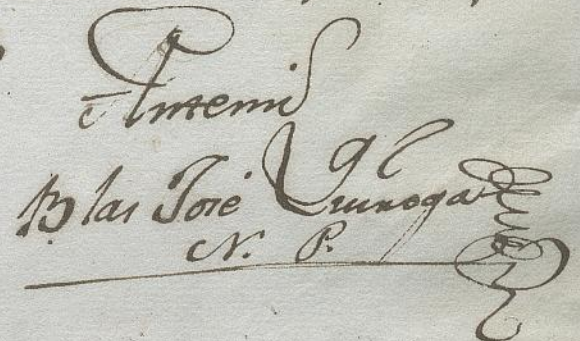 Antemi
Blas José Quiroga
N. P.